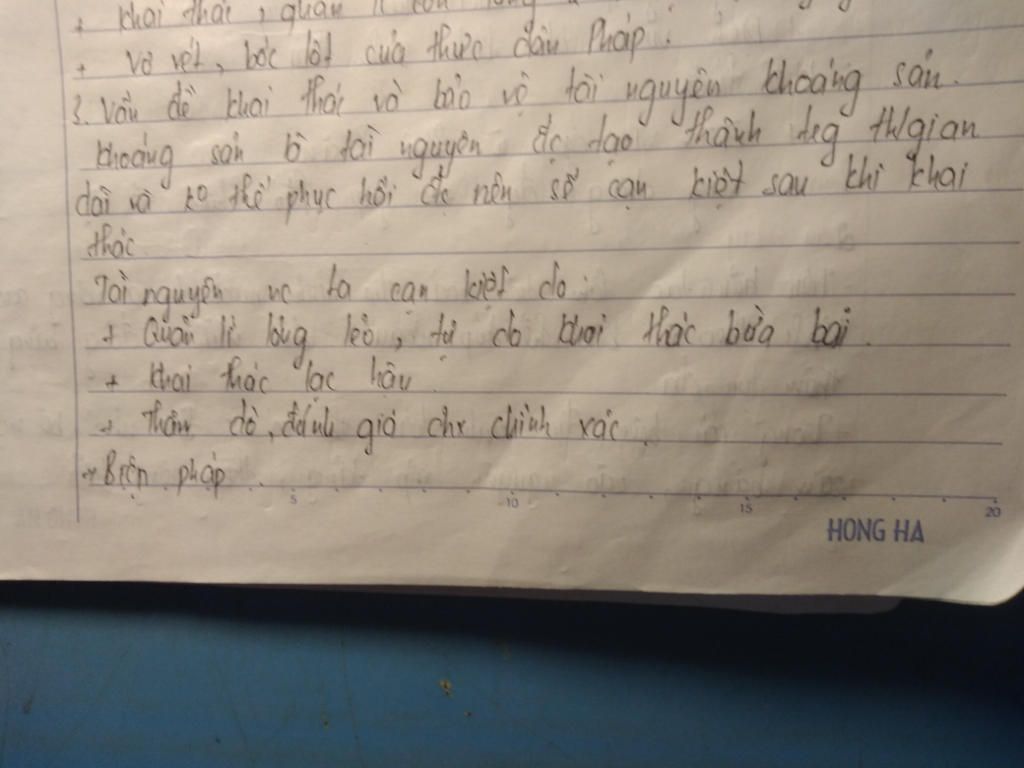 + khai thác, quản lí còn lỏng
+ vơ vét, bóc lột của thực dân Pháp.
3. Vấn đề khai thác và bảo vệ tài nguyên khoáng sản.
khoáng sản là tài nguyên đc tạo thành trg th/gian
dài và ko thể phục hồi đc nên sẽ cạn kiệt sau khi khai
thác.
Tài nguyên nc ta cạn kiệt do:
+ Quản lí lỏng lẻo, tự do khai thác bừa bãi.
+ khai thác lạc hậu.
+ Thăm dò, đánh giá chx chính xác.
→ Biện pháp
5 10 15 20
HONG HA